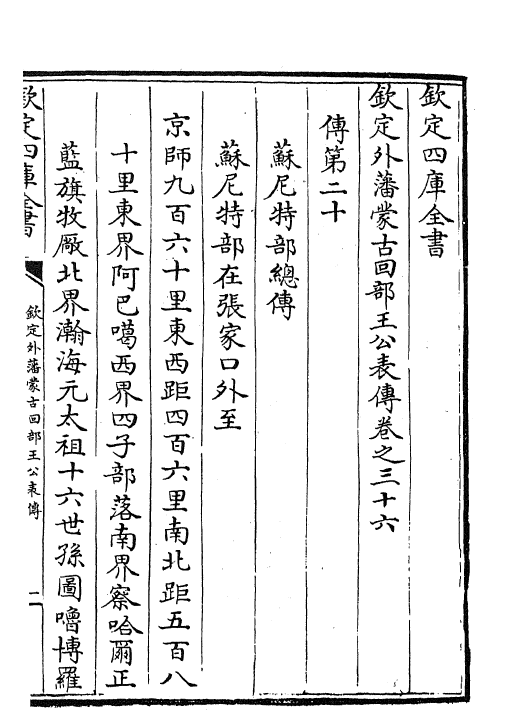 欽定四庫全書
欽定外藩蒙古回部王公表傳卷之三十六
傳第二十
蘇尼特部總傳
蘇尼特部在張家口外至
京師九百六十里東西距四百六里南北距五百八
十里東界阿巴噶西界四子部落南界察哈爾正
藍旗牧厰北界瀚海元太祖十六世孫圖嚕博羅
欽定四庫全書
欽定外藩蒙古回部王公表傳